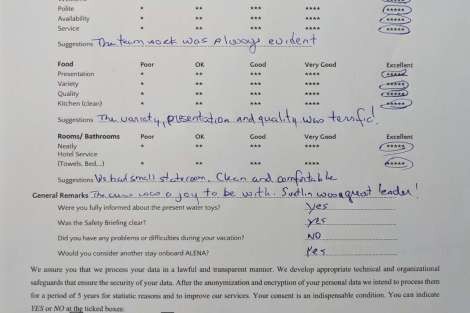 Polite * ** *** **** *****
Availability * ** *** **** *****
Service * ** *** **** *****
Suggestions The team work was always evident
Food Poor OK Good Very Good Excellent
Presentation * ** *** **** *****
Variety * ** *** **** *****
Quality * ** *** **** *****
Kitchen (clean) * ** *** **** *****
Suggestions The variety, presentation and quality was terrific!
Rooms/ Bathrooms Poor OK Good Very Good Excellent
Neatly * ** *** **** *****
Hotel Service
(Towels. Bed...) * ** *** **** *****
Suggestions We had small stateroom. Clean and comfortable
General Remarks The crew was a joy to be with. was a great leader!
Were you fully informed about the present water toys? yes
Was the Safety Briefing clear? yes
Did you have any problems or difficulties during your vacation? NO
Would you consider another stay onboard ALENA? Yes
We assure you that we process your data in a lawful and transparent manner. We develop appropriate technical and organizational
safeguards that ensure the security of your data. After the anonymization and encryption of your personal data we intend to process them
for a period of 5 years for statistic reasons and to improve our services. Your consent is an indispensable condition. You can indicate
YES or NO at the ticked boxes: